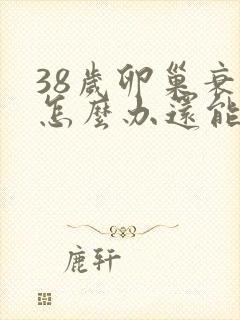 38歲卵巢衰
怎麼办還能
鹿轩